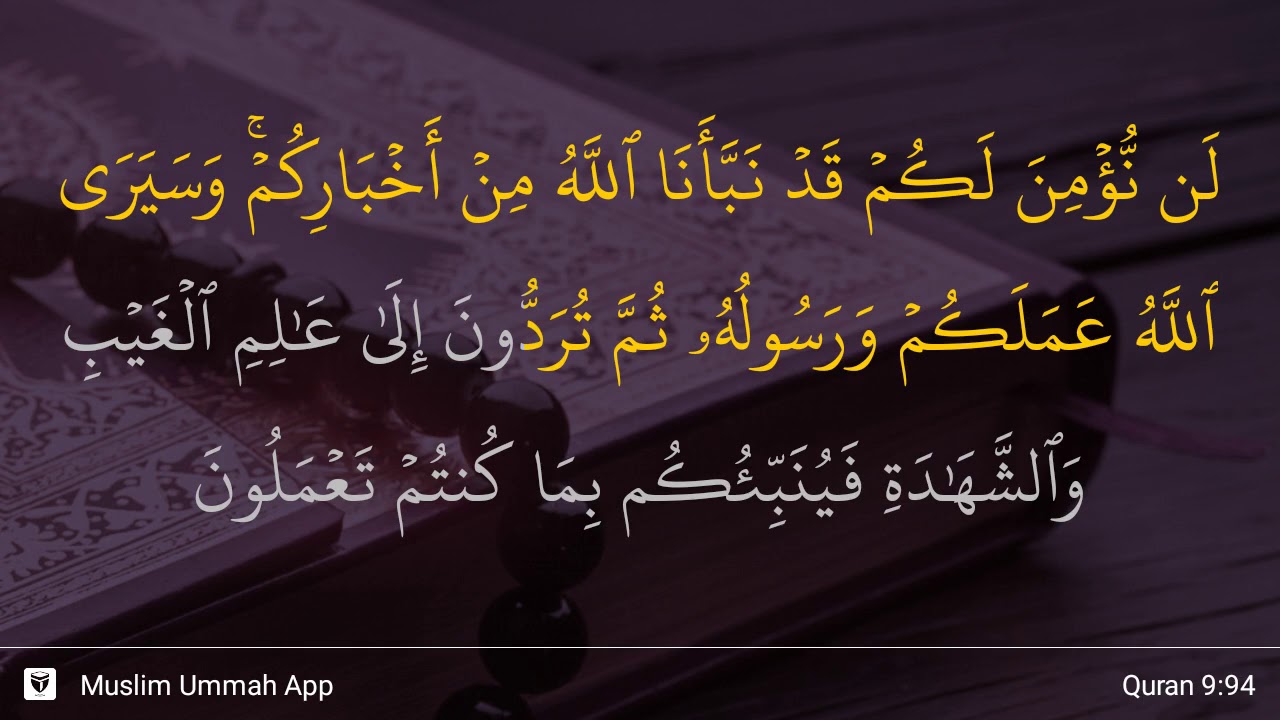 لَن نُّؤْمِنَ لَكُمْ قَدْ نَبَّأَنَا ٱللَّهُ مِنْ أَخْبَارِكُمْ ۚ وَسَيَرَى
ٱللَّهُ عَمَلَكُمْ وَرَسُولُهُۥ ثُمَّ تُرَدُّونَ إِلَىٰ عَـٰلِمِ ٱلْغَيْبِ
وَٱلشَّهَـٰدَةِ فَيُنَبِّئُكُم بِمَا كُنتُمْ تَعْمَلُونَ
Muslim Ummah App
Quran 9:94